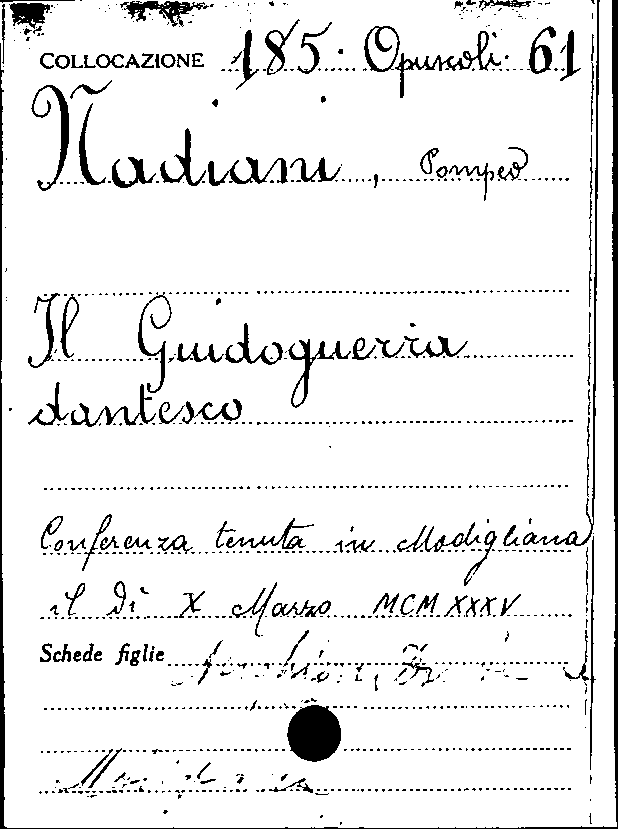 COLLOCAZIONE 185. Opuscoli. 61
Nadiani, Pompeo
Il Guidoguerra
dantesco
Conferenza tenuta in Modigliana
il dì X Marzo MCMXXXV
Schede figlie